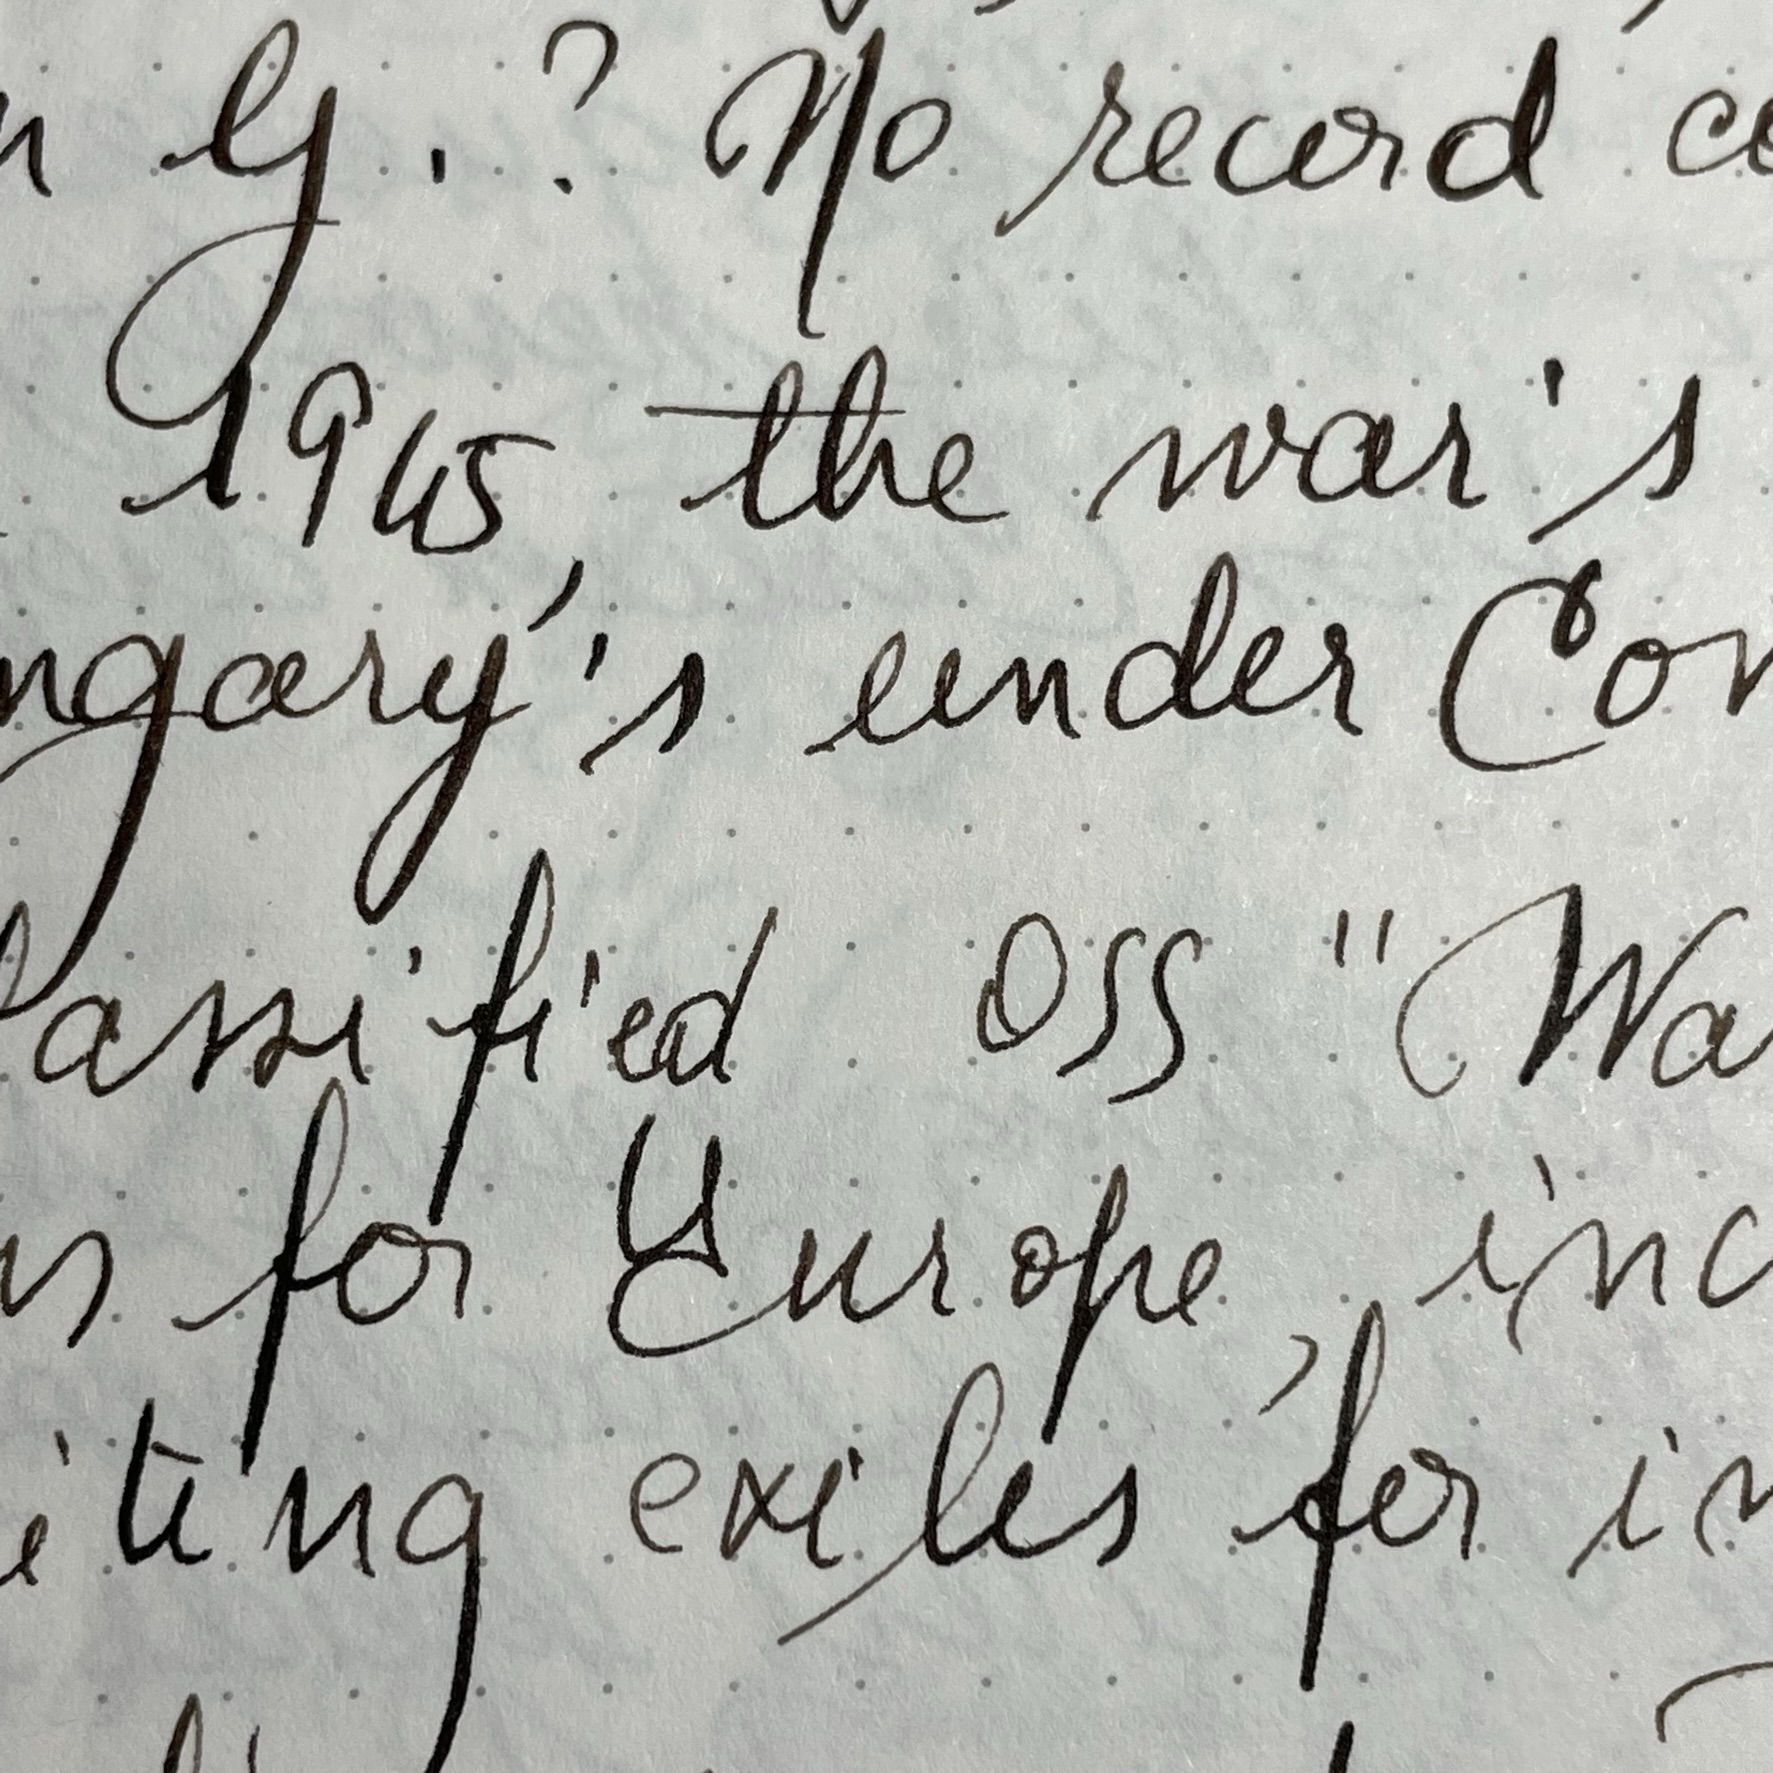 n G.? No record co
1945, the war's
ngary's under Con
lassified OSS "Wa
ns for Europe, inc
iting exiles for in